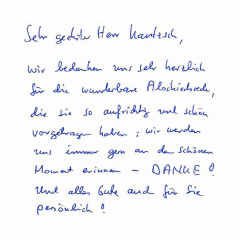 Sehr geehrter Herr Kautzsch,
wir bedanken uns sehr herzlich
für die wunderbare Abschiedsrede,
die sie so aufrichtig und schön
vorgetragen haben; wir werden
uns immer gern an den schönen
Moment erinnern – DANKE!
Und alles Gute auch für Sie
persönlich!